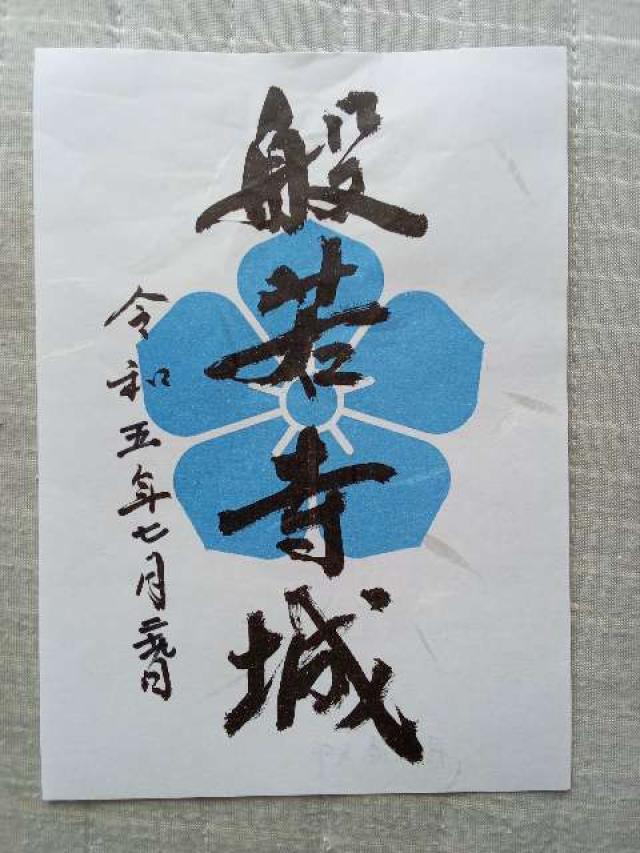 般若寺城
令和五年七月二九日